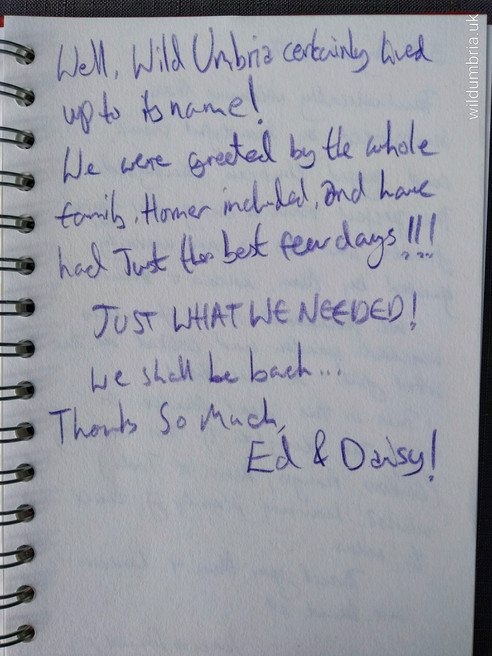 Well, Wild Umbria certainly lived
up to its name!
We were greeted by the whole
family, Homer included, and have
had Just the best few days!!!
JUST WHAT WE NEEDED!
We shall be back...
Thanks So Much,
Ed & Daisy!
wildumbria.uk